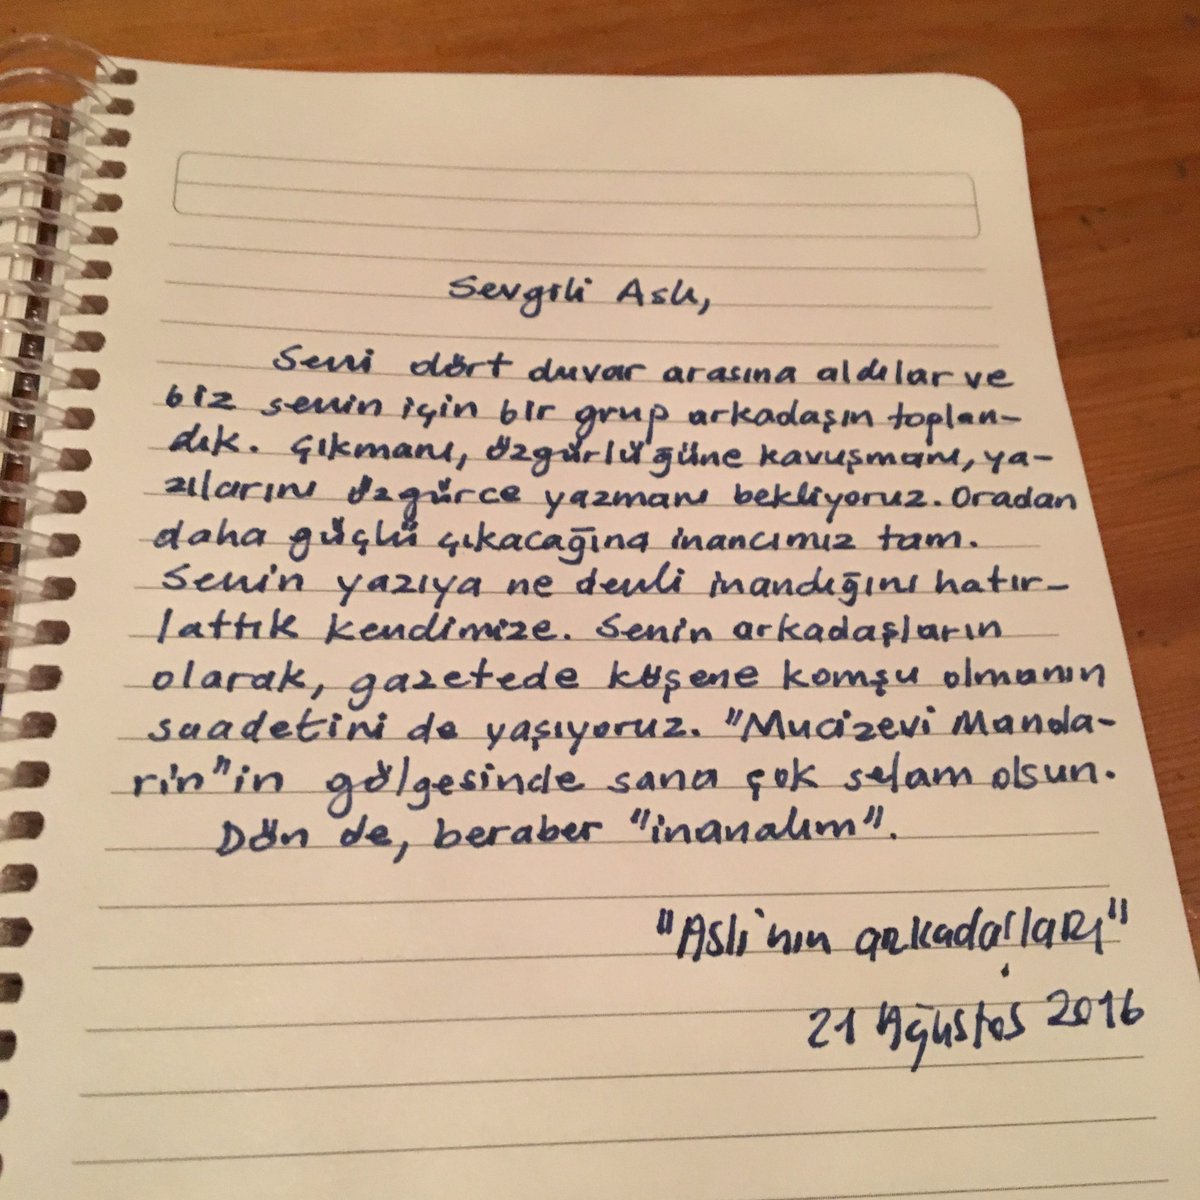 Sevgili Aslı,
Seni dört duvar arasına aldılar ve
biz senin için bir grup arkadaşın toplan-
dık. Çıkmanı, özgürlüğüne kavuşmanı, ya-
zılarını özgürce yazmanı bekliyoruz. Oradan
daha güçlü çıkacağına inancımız tam.
Senin yazıya ne denli inandığını hatır-
lattık kendimize. Senin arkadaşların
olarak, gazetede köşene komşu olmanın
saadetini de yaşıyoruz. "Mucizevi Manda-
rin"in gölgesinde sana çok selam olsun.
Dön de, beraber "inanalım".
"Aslı'nın arkadaşları"
21 Ağustos 2016